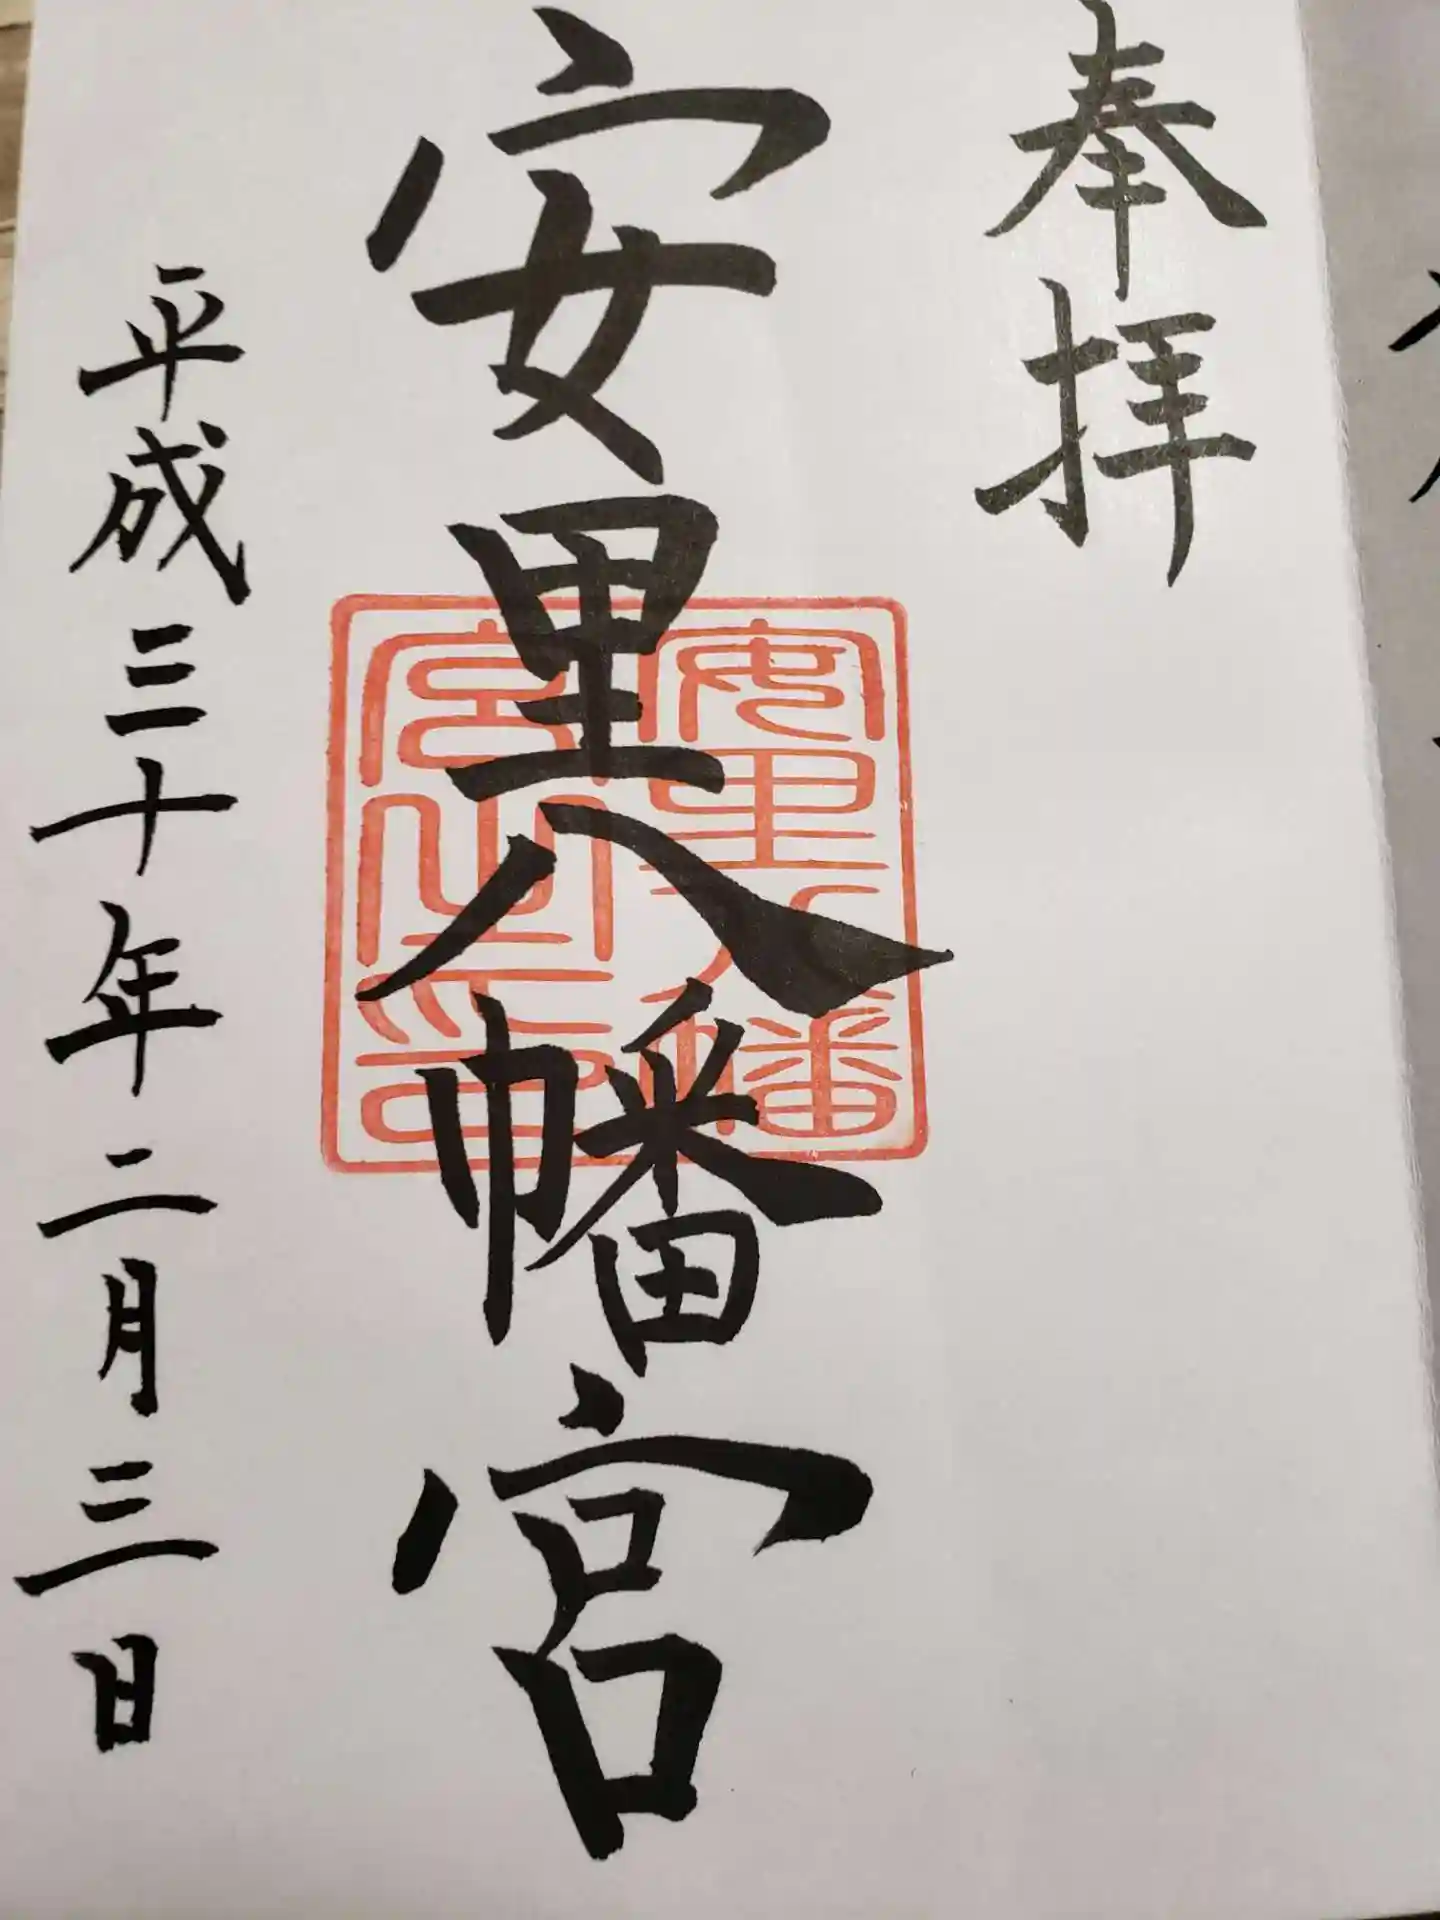 奉拝
安里八幡宮
安里八幡
宮之印
平成三十年二月三日